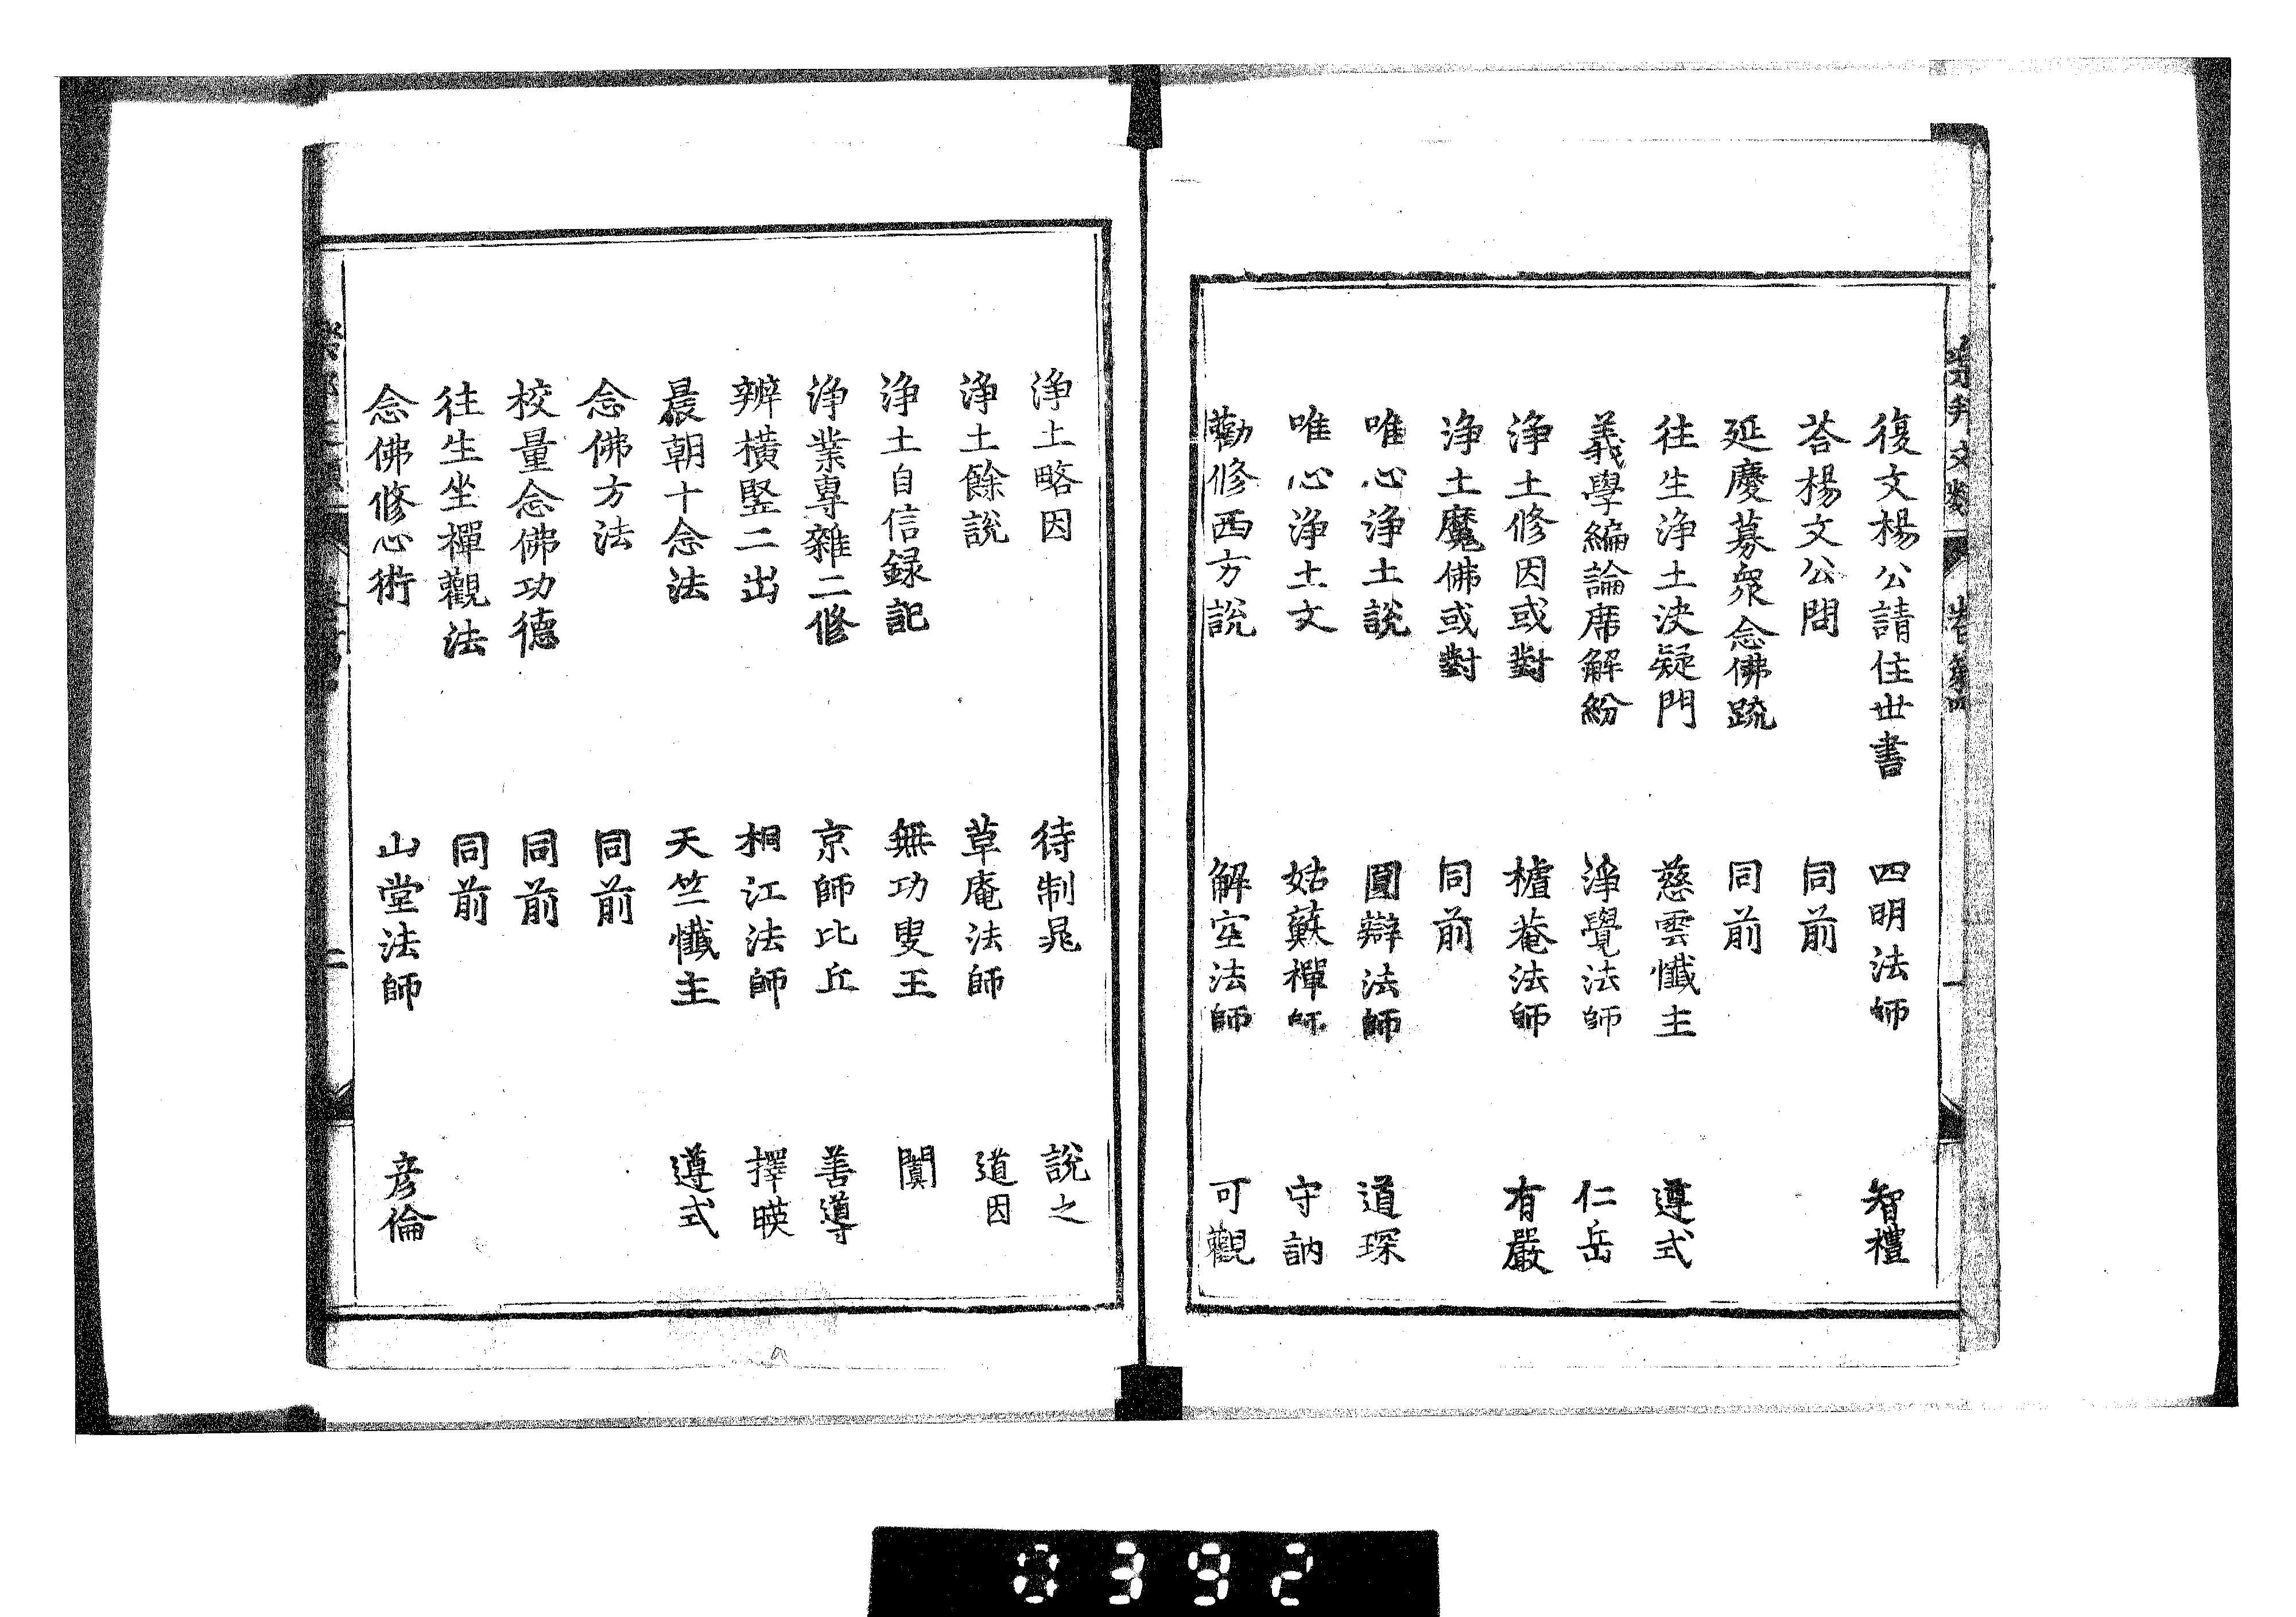 復文楊公請住世書　四明法師　智禮
荅楊文公問　同前
延慶募衆念佛疏　同前
往生淨土決疑門　慈雲懺主　遵式
義學編論席解紛　淨覺法師　仁岳
淨土修因或對　樝菴法師　有嚴
淨土魔佛或對　同前
唯心淨土說　圓辯法師　道琛
唯心淨土文　姑蘇禪師　守訥
勸修西方說　解空法師　可觀
淨土略因　待制晁　說之
淨土餘說　草庵法師　道因
淨土自信録記　無功叟王　闐
淨業專雜二修　京師比丘　善導
辨橫竪二出　桐江法師　擇暎
晨朝十念法　天竺懺主　遵式
念佛方法　同前
校量念佛功德　同前
往生坐禪觀法　同前
念佛修心術　山堂法師　彦倫
二
0392